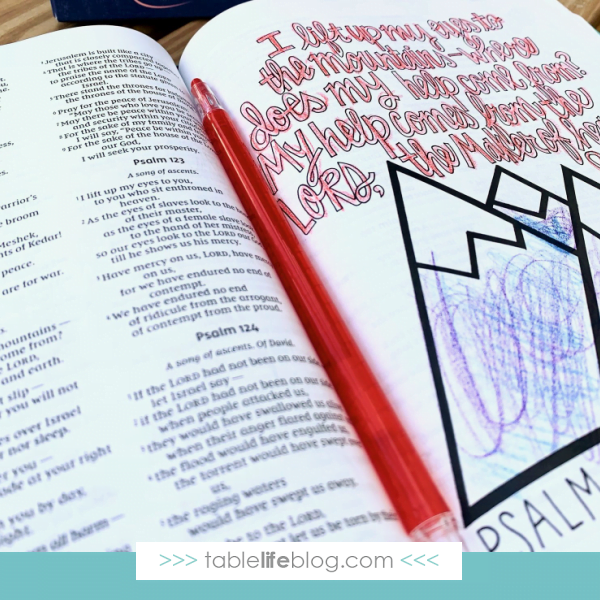 Jerusalem is built like a city
that is closely compacted
That is where the tribes go up—
the tribes of the LORD—
to praise the name of the LORD
according to the statute
There stand the thrones for
the thrones of the house
Pray for the peace of Jerusalem:
"May those who love you
May there be peace within
and security within your
For the sake of my family and
I will say, "Peace be within
For the sake of the house of the
our God,
I will seek your prosperity.
Psalm 123
A song of ascents.
I lift up my eyes to you,
to you who sit enthroned in
heaven.
As the eyes of slaves look to the
of their master,
as the eyes of a female slave
to the hand of her mistress
so our eyes look to the LORD our
till he shows us his mercy.
Have mercy on us, LORD, have
on us,
for we have endured no end of
contempt.
We have endured no end
of ridicule from the arrogant,
of contempt from the proud.
Psalm 124
A song of ascents. Of David.
If the LORD had not been on our
let Israel say—
if the LORD had not been on our
when people attacked us,
they would have swallowed us
when their anger flared against
the flood would have engulfed
the torrent would have swept
us,
the raging waters
would have swept us away.
to the LORD.
not let us be torn by
arrior's
broom
Meshek,
nts of Kedar!
peace.
are for war.
mountains—
come from?
LORD,
and earth.
slip—
you will not
over Israel
nor sleep.
you—
at your right
you by day,
night.
all harm—
I lift up my eyes to
the mountains—where
does my help come from?
My help comes from the
LORD, the Maker of
PSALM
>>> tablelifeblog.com <<<